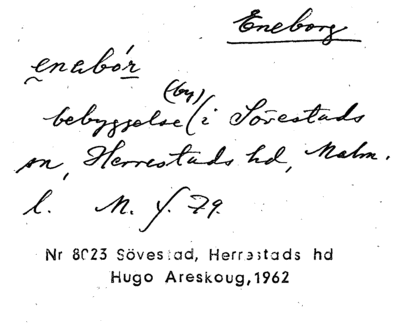 Eneborg
enabór
bebyggelse (by) (i Sövestads
sn, Herrestads hd, Malm.
l. M. f. 79.
Nr 8023 Sövestad, Herrestads hd
Hugo Areskoug, 1962